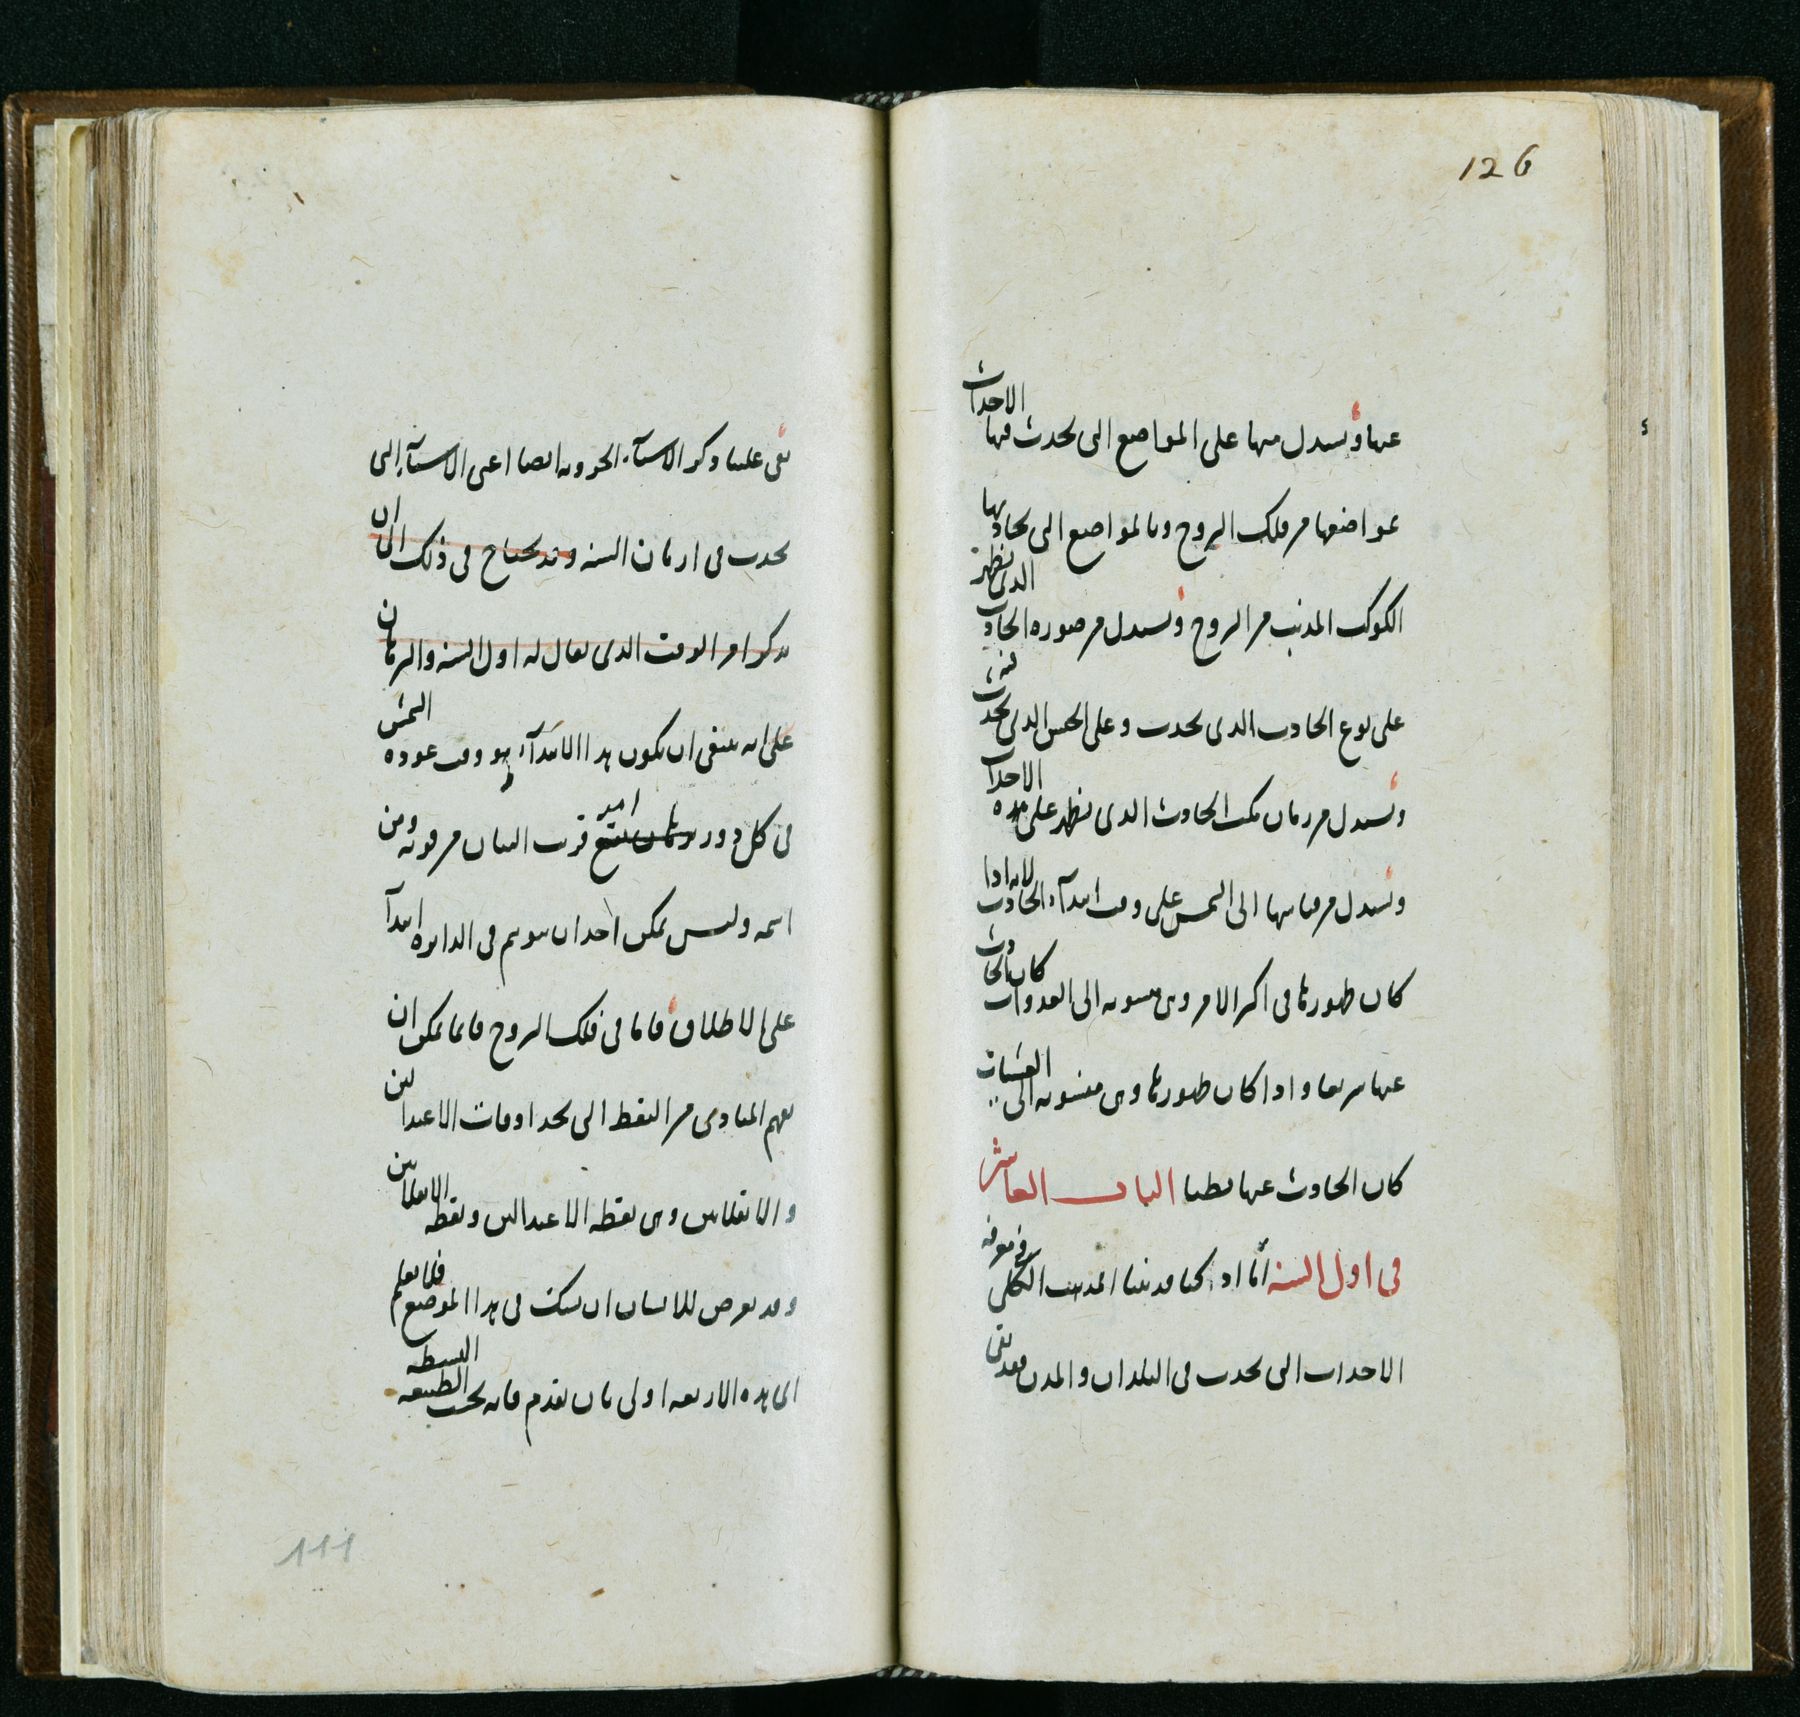 126
عنها ويستدل منها على المواضع التى تحدث فيها الاحداث
بمواضعها من فلك البروج وبالمواضع التى يحاذيها
الكوكب المذنب من البروج ويستدل من صوره الحادث الذى يظهر
على نوع الحادث الذى يحدث وعلى الجنس الذى يحدث فيه
ويستدل من زمان مكث الحادث الذى يظهر على مده الاحداث
ويستدل من قياسها الى الشمس على وقت ابتدآء الحادث لانه اذا
كان ظهورها فى اكثر الامر وهى منسوبه الى الغدوات كان الحادث
عنها سريعا واذا كان ظهورها وهى منسوبه الى العشيات
كان الحادث عنها بطيئا الباب العاشر
فى اول السنه امّا اذ كنا قد بينا المذهب الكلى فى معرفه
الاحداث التى تحدث فى البلدان والمدن فقد بقى
بقى علينا ذكر الاشيآء الجزويه ايضا اعنى الاشيآء التى
تحدث فى ازمان السنه وقد يحتاج فى ذلك الى ان
يذكر امر الوقت الذى يقال له اول السنه والزمان
على انه ينبغى ان يكون هذا الابتدآء هو وقت عوده الشمس
فى كل دور قرب البيان من قوته ومن
اسمه وليس يمكن احد ان يتوهم فى الدايره ابتدآ
على الاطلاق فاما فى فلك البروج فانما يمكن ان
يفهم المبادى من النقط التى تحد اوقات الاعتدالين
والانقلابين وهى نقطه الاعتدالين ونقطه الانقلابين
وقد يعرض للانسان ان يشك فى هذا الموضع فلا يعلم
اى هذه الاربعه اولى بان يقدم فانه بحسب الطبيعه البسيطه
111